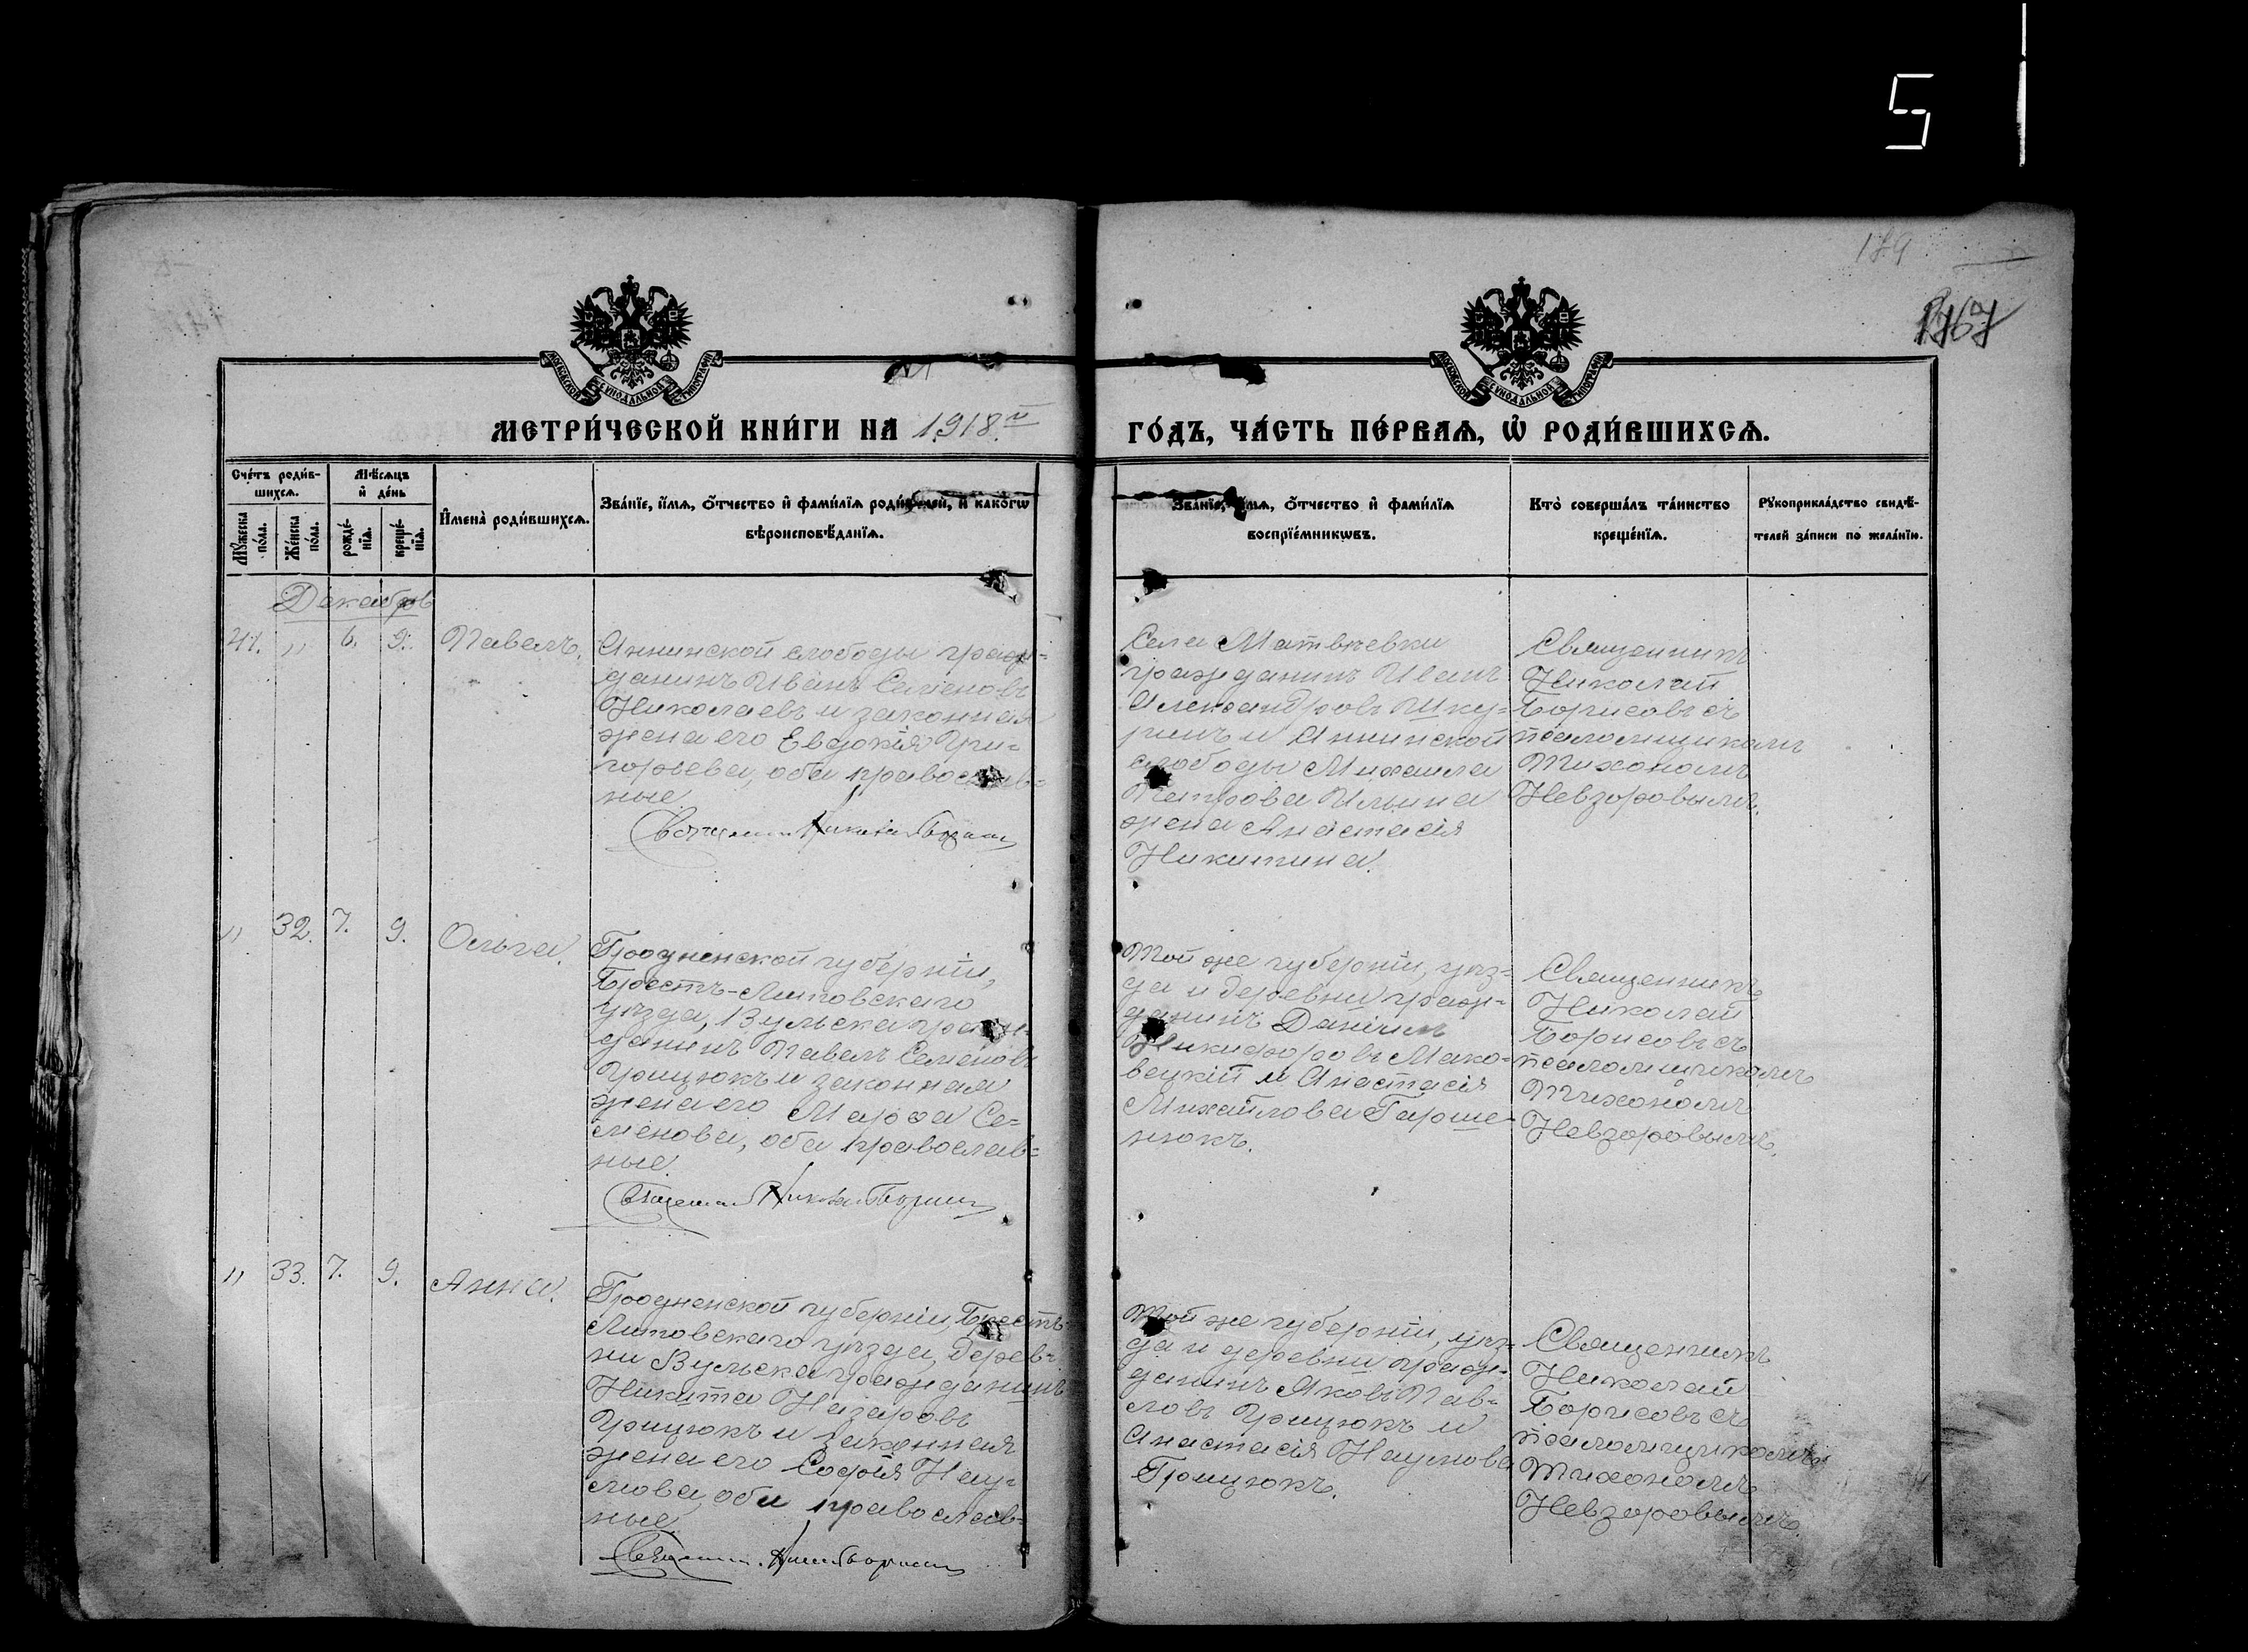 5
189
1767
МОСКОВСКОЙ СѴНОДАЛЬНОЙ ТИПОГРАФІИ
МОСКОВСКОЙ СѴНОДАЛЬНОЙ ТИПОГРАФІИ
МЕТРИ́ЧЕСКОЙ КНИ́ГИ НА 1918.й ГО́ДЪ, ЧА́СТЬ ПЕ́РВАѦ, Ѡ҆ РОДИ́ВШИХСѦ.
Сче́тъ роди́в-
шихсѧ.
Мꙋ́жеска по́ла.
Же́нска по́ла.
Мѣ́сѧцъ
и҆ де́нь
рожде́-нїѧ.
креще́-нїѧ.
И҆мена̀ роди́вшихсѧ.
Зва́нїе, и҆́мѧ, ѻ҆́тчество и҆ фами́лїѧ роди́телей, и҆ како́гѡ
вѣроисповѣ́данїѧ.
Зва́нїе, и҆́мѧ, ѻ҆́тчество и҆ фами́лїѧ
воспрїе́мникѡвъ.
Кто̀ соверша́лъ та́инство
креще́нїѧ.
Рꙋкоприкла́дство свидѣ́-
телей за́писи по жела́нїю.
Декабрь
41. " 6. 9. Павелъ.
Аннинской слободы граж-
данинъ Иванъ Семеновъ
Николаевъ и законная
жена его Евдокія Гри-
горьева, оба православ-
ные.
Священникъ Николай Борисовъ
Села Матвѣевки
гражданинъ Иванъ
Александровъ Шку-
ринъ и Аннинской
слободы Михаила
Петрова Ильина
жена Анастасія
Никитина.
Священникъ
Николай
Борисовъ съ
псаломщикомъ
Тихономъ
Невзоровымъ.
" 32. 7. 9. Ольга.
Гродненской губерніи,
Брестъ-Литовскаго
уѣзда, Вулька граж-
данинъ Павелъ Семеновъ
Грицюкъ и законная
жена его Марѳа Се-
менова, оба православ-
ные.
Священникъ Николай Борисовъ
Той же губерніи, уѣз-
да и деревни граж-
данинъ Даніилъ
Никифоровъ Мако-
вецкій и Анастасія
Михайлова Гарше-
нюкъ.
Священникъ
Николай
Борисовъ съ
псаломщикомъ
Тихономъ
Невзоровымъ.
" 33. 7. 9. Анна.
Гродненской губерніи, Брестъ-
Литовскаго уѣзда, дерев-
ни Вулька гражданинъ
Никита Назаровъ
Грицюкъ и законная
жена его Софія Нау-
мова, оба православ-
ные.
Священникъ Николай Борисовъ
Той же губерніи, уѣз-
да и деревни граж-
данинъ Яковъ Пав-
ловъ Грицюкъ и
Анастасія Наумова
Грицюкъ.
Священникъ
Николай
Борисовъ съ
псаломщикомъ
Тихономъ
Невзоровымъ.